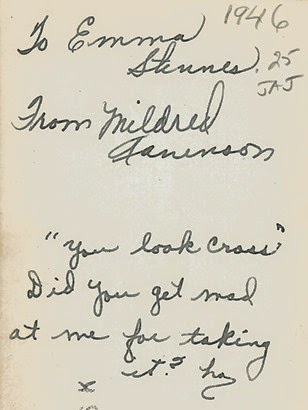 1946
To Emma
Stennes.
25
JAJ
From Mildred
"You look cross"
Did you get mad
at me for taking
it? ha
x